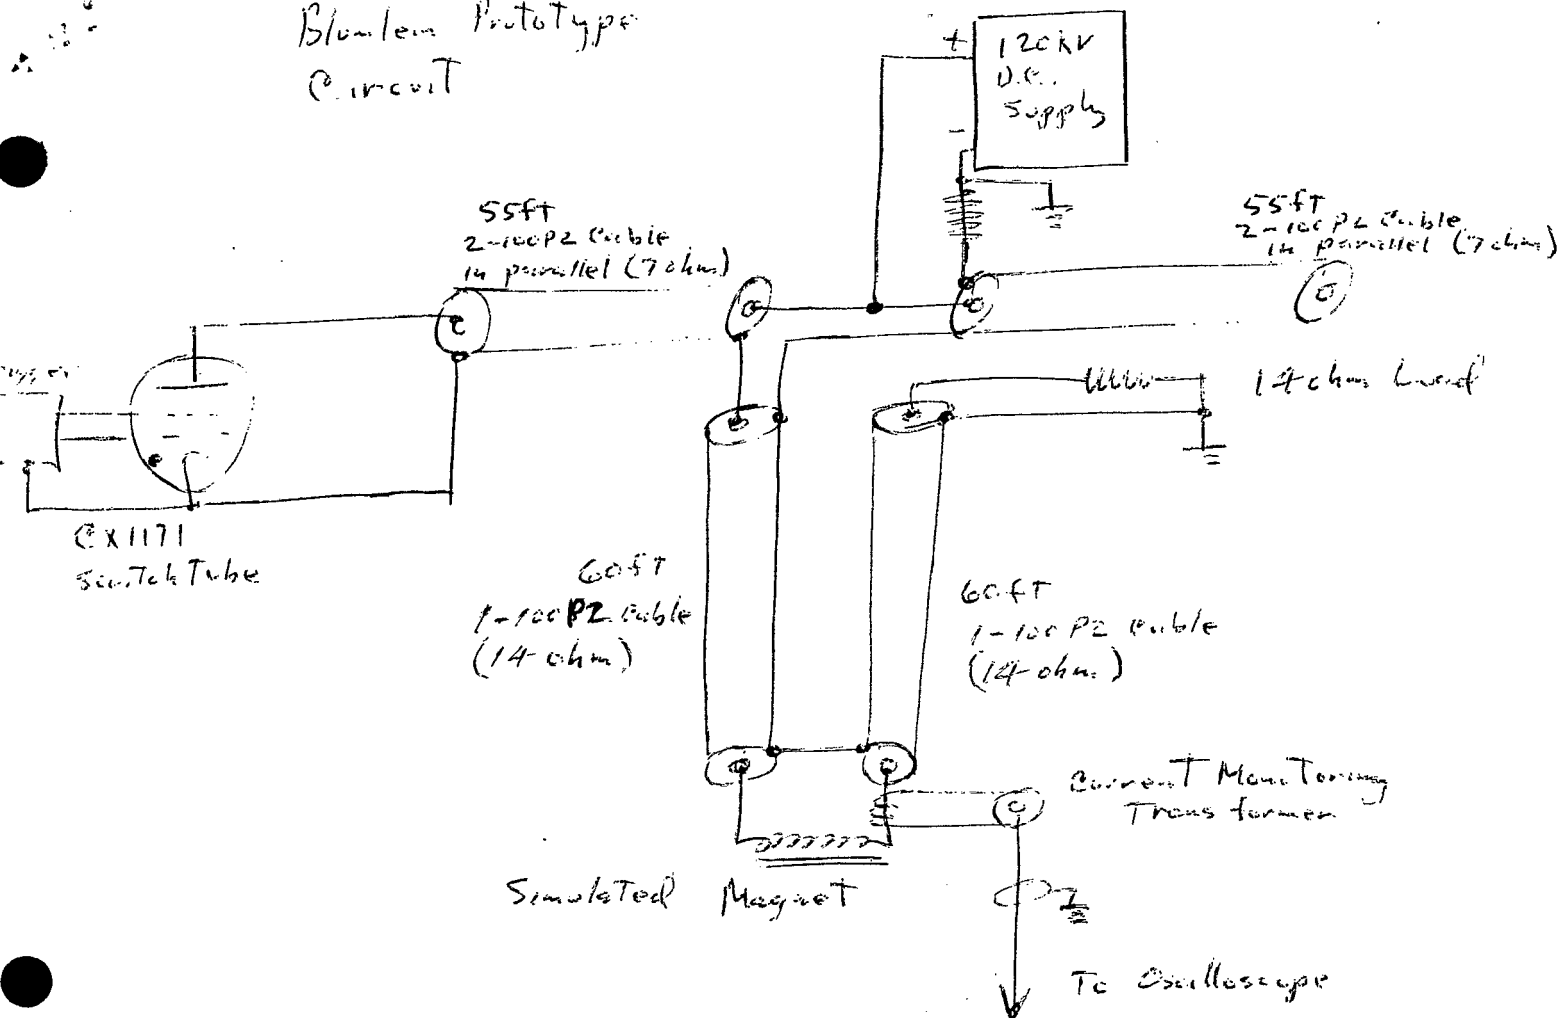 Blumlein Prototype
Circuit
+ 120kV
D.C.
Supply
-
55ft
2-100P2 Cable
in parallel (7 ohm)
55ft
2-100P2 Cable
in parallel (7 ohm)
14 ohm Load
CX1171
Switch Tube
60ft
1-100P2 Cable
(14-ohm)
60ft
1-100P2 Cable
(14-ohm)
Current Monitoring
Transformer
Simulated Magnet
To Oscilloscope